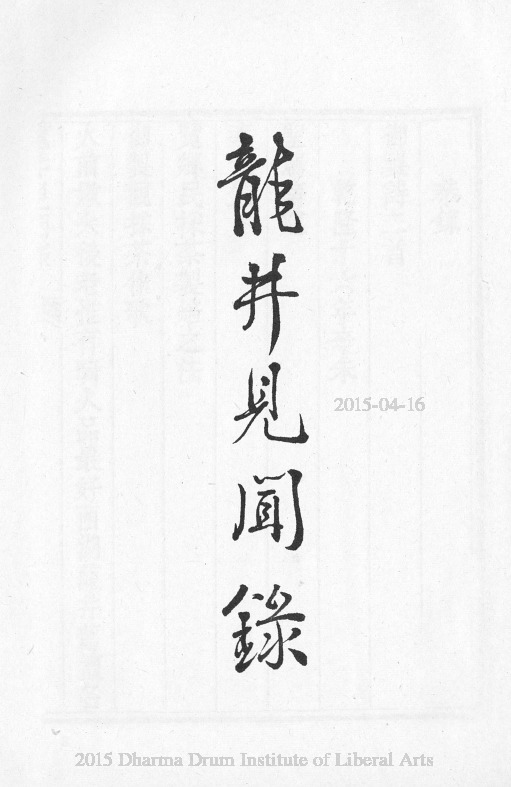 龍井見聞錄
2015-04-16
2015 Dharma Drum Institute of Liberal Arts